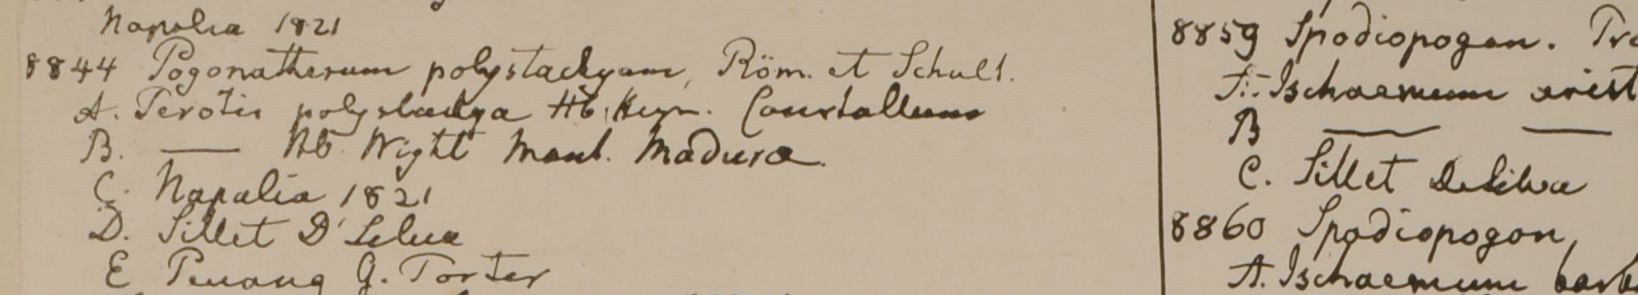 Napalia 1821
8844 Pogonatherum polystachyum, Röm. et Schult.
A. Perotis polystachya Hb. Heyn. Courtallum
B. —— Hb Wight Mont. Madura.
C. Napalia 1821
D. Sillet D' Silva
E Penang G. Porter
8859 Spodiopogon.
F. Ischaemum arist
B —— ——
C. Sillet DeSilva
8860 Spodiopogon,
A. Ischaemum barb